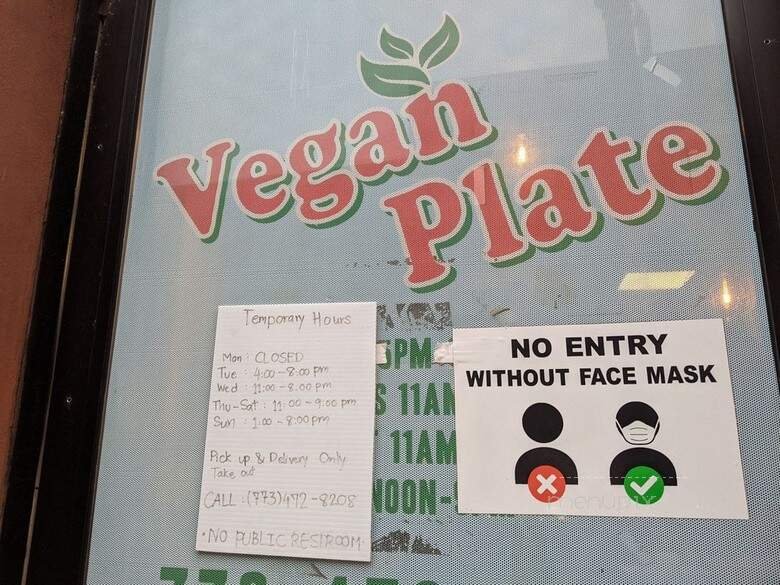 Vegan
Plate
Temporary Hours
Mon: CLOSED
Tue : 4:00 - 8:00 pm
Wed : 11:00 - 8:00 pm
Thu - Sat : 11:00 - 9:00 pm
Sun : 1:00 - 8:00 pm
Pick up & Delivery Only
Take out
CALL : (773)472-8208
• NO PUBLIC RESTROOM
5PM
S 11AM
11AM
NOON-
NO ENTRY
WITHOUT FACE MASK
menupix